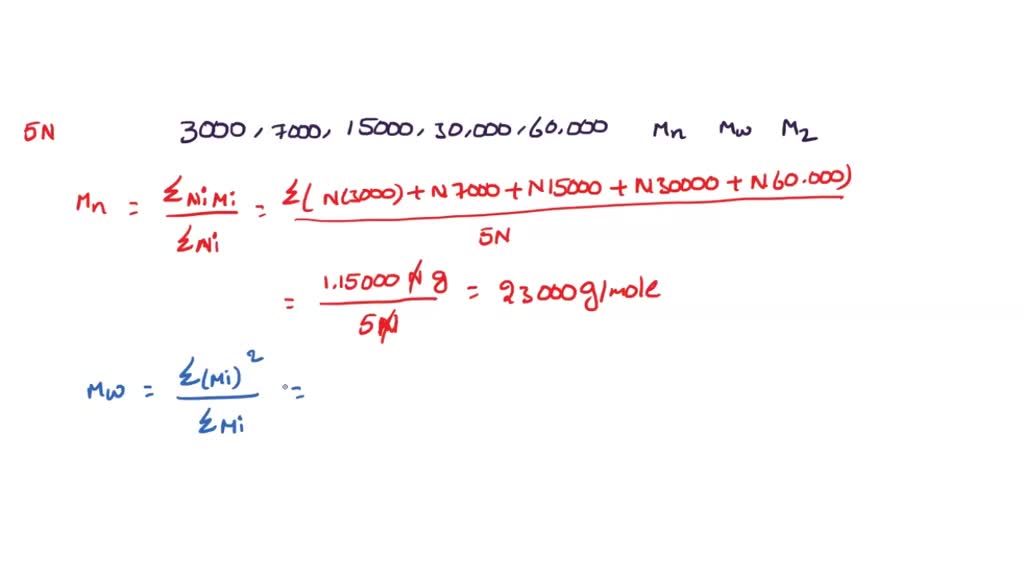 5N 3000, 7000, 15000, 30,000, 60.000 Mn Mw Mz
Mn = ΣNiMi / ΣNi = Σ(N(3000) + N7000 + N15000 + N30000 + N60.000) / 5N
= 1.15000 N g / 5N = 23000g/mole
Mw = Σ(Mi)² / ΣMi =